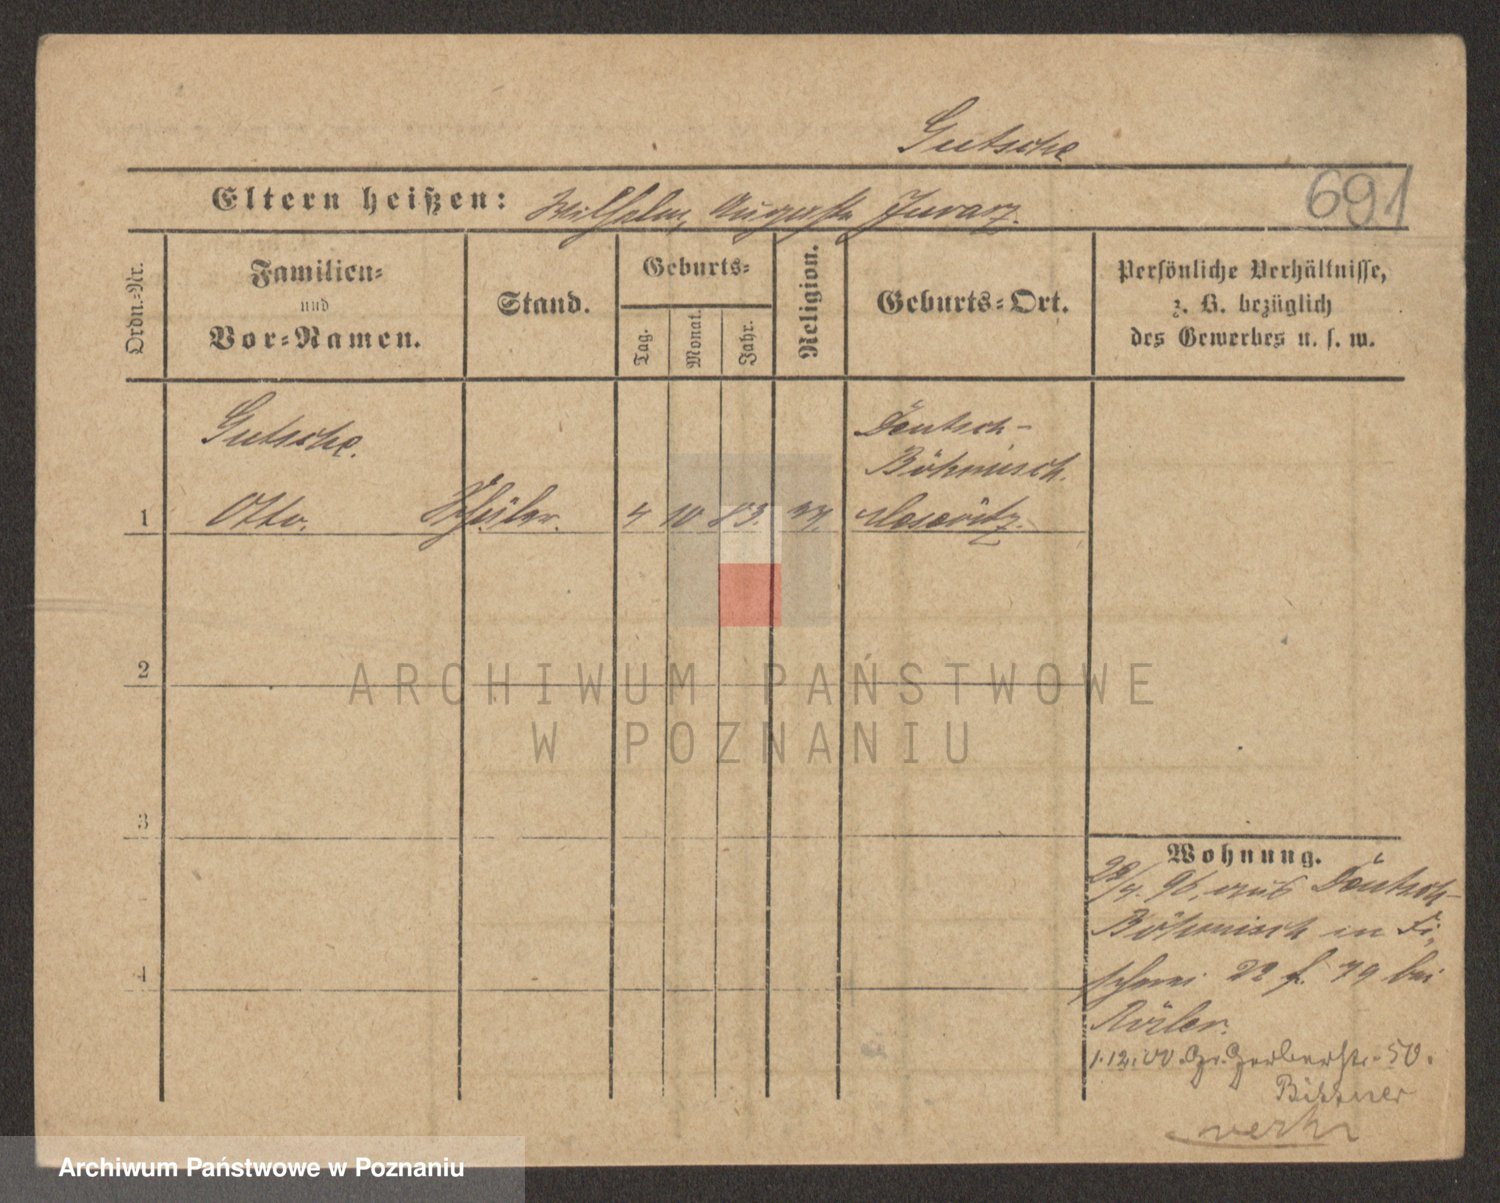 Gutsche
Eltern heißen: Wilhelm, Augusta
691
Ordn.-Nr.
Familien-
und
Vor-Namen.
Stand.
Geburts-
Tag.
Monat.
Jahr.
Religion.
Geburts-Ort.
Persönliche Verhältnisse,
z. B. bezüglich
des Gewerbes u. s. w.
Gutsche.
Deutsch-
Böhmisch.
1 Otto. Schüler. 4 10 83.
2
ARCHIWUM PAŃSTWOWE
W POZNANIU
3
Wohnung.
96, aus Deutsch-
Böhmisch in Fi-
4
scherei 22 f. 79 bei
Rösler.
1.12.00. Gr. Gerberstr. 50.
Bittner
Archiwum Państwowe w Poznaniu